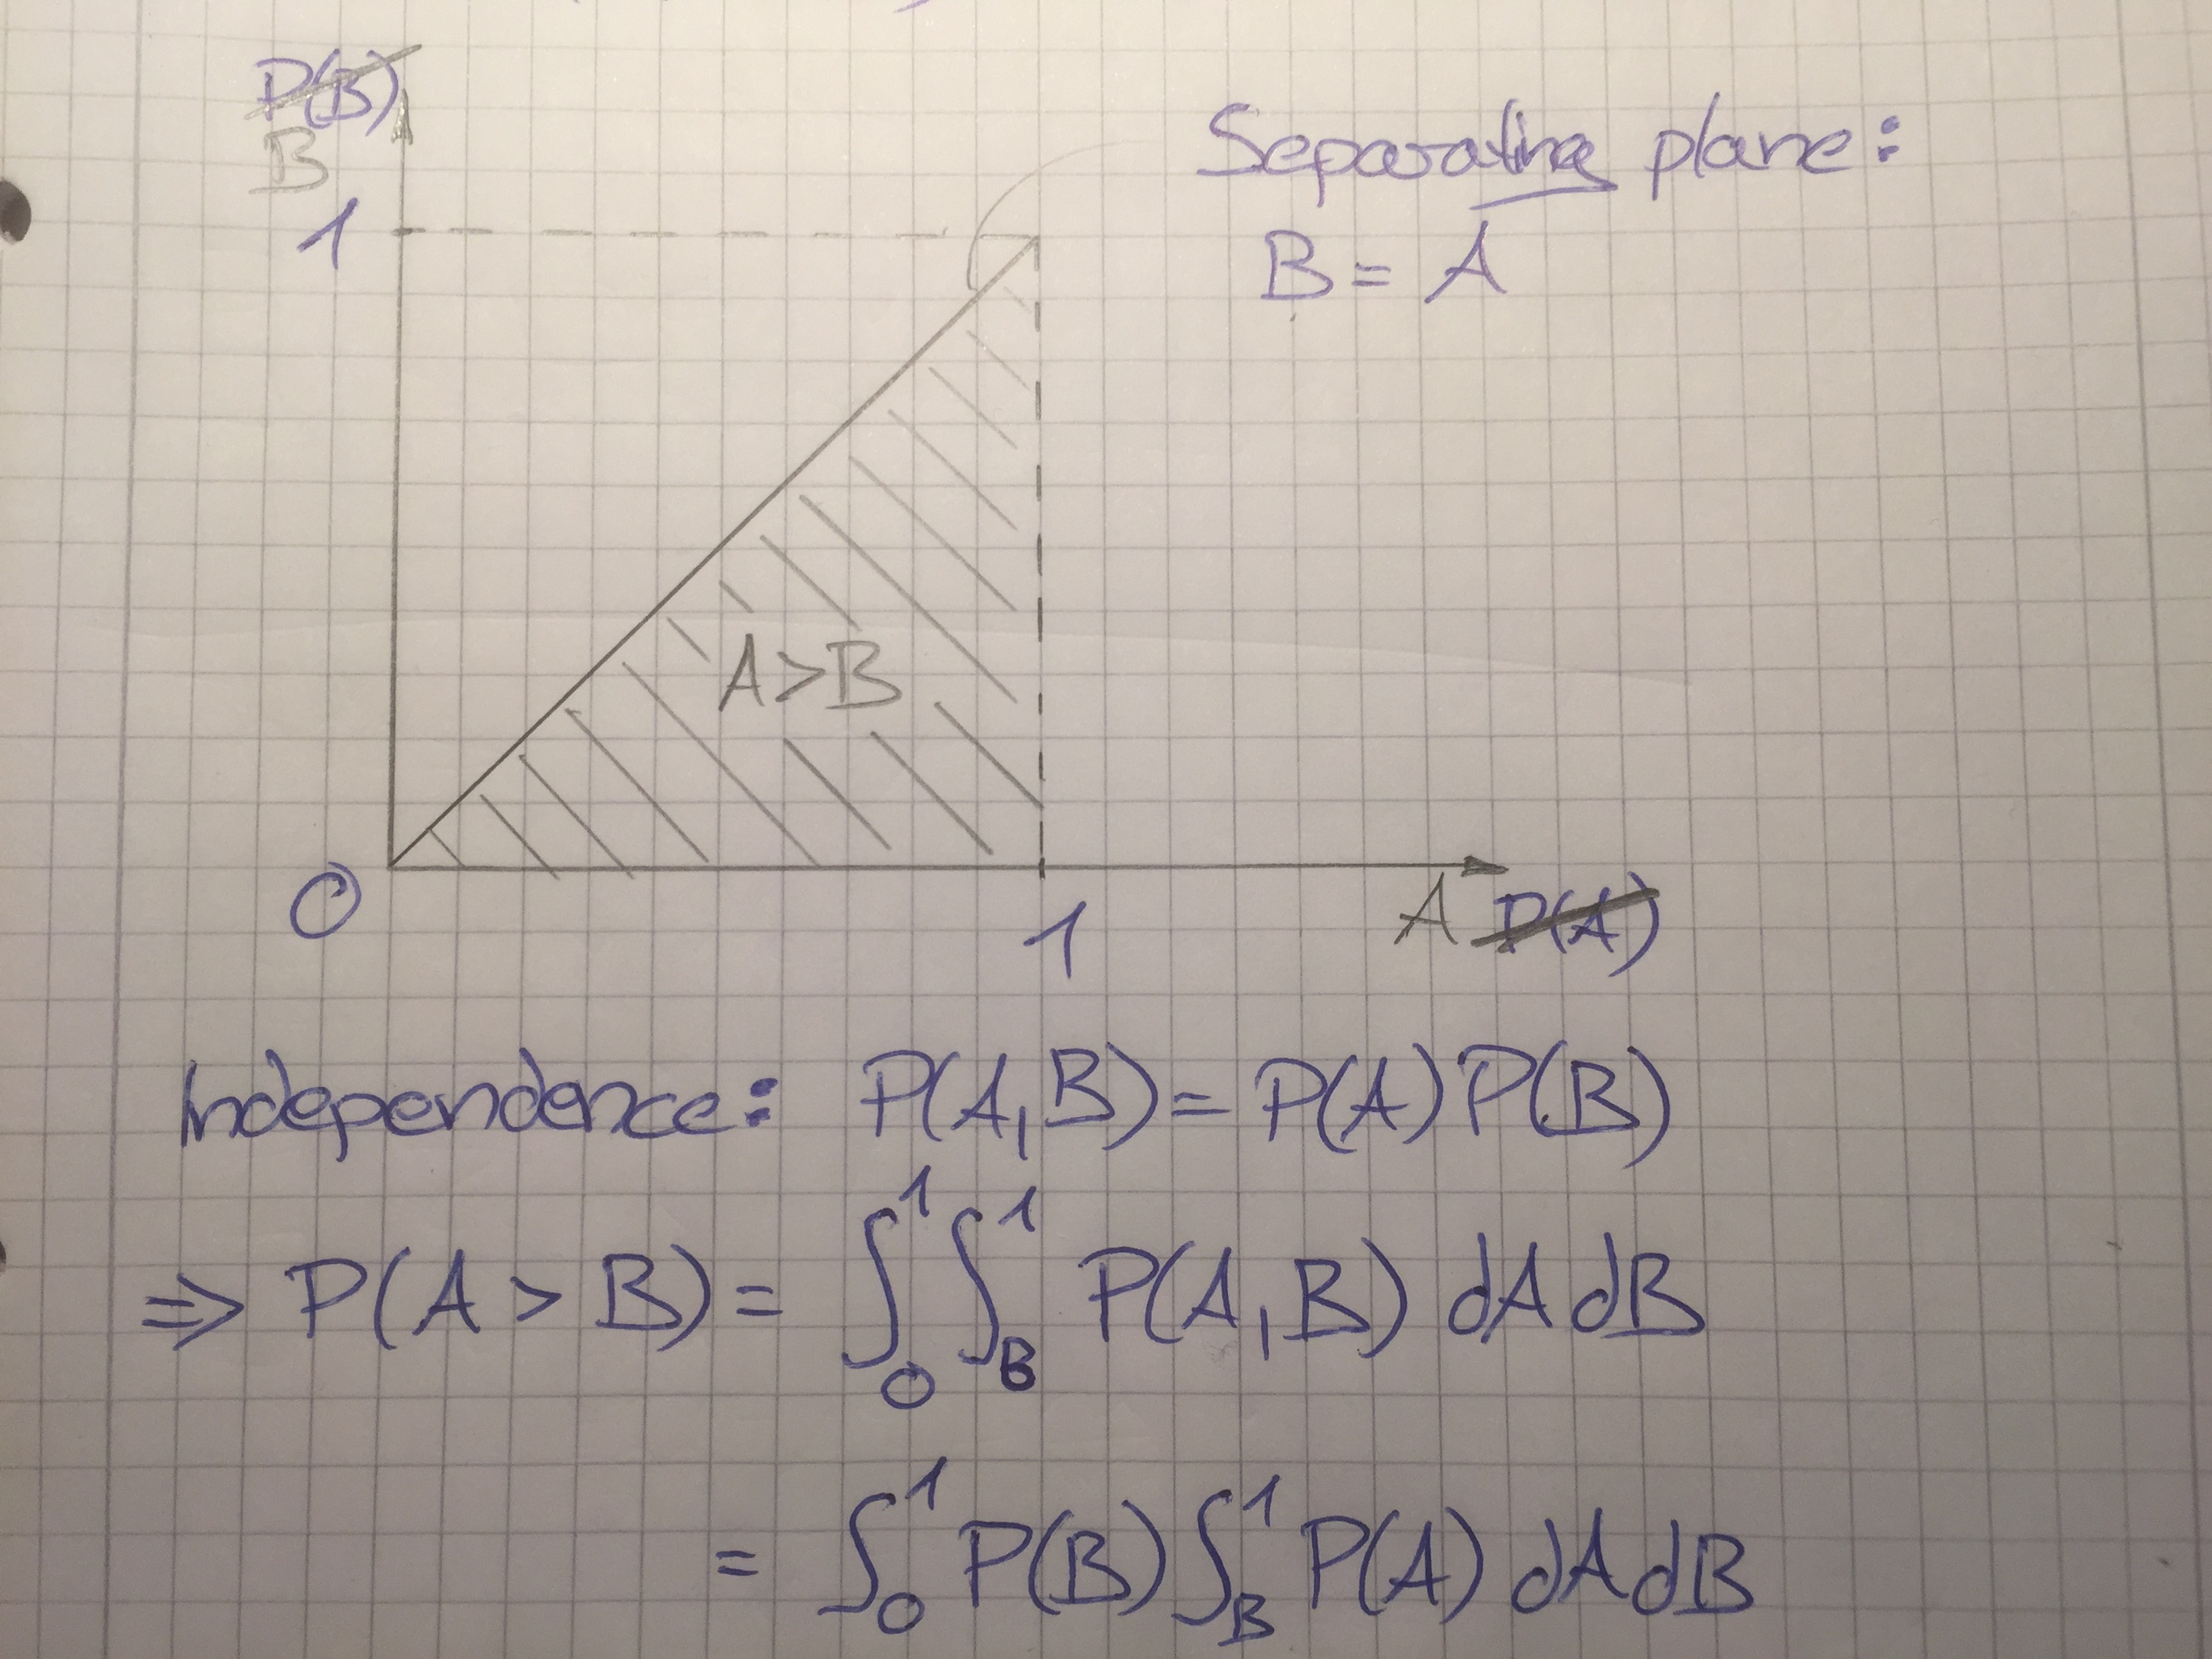 P(B)
B
Separating plane:
1
B = A
A>B
0
1
A P(A)
Independence: P(A,B) = P(A)P(B)
⇒ P(A > B) = ∫₀¹ ∫_B¹ P(A,B) dA dB
= ∫₀¹ P(B) ∫_B¹ P(A) dA dB